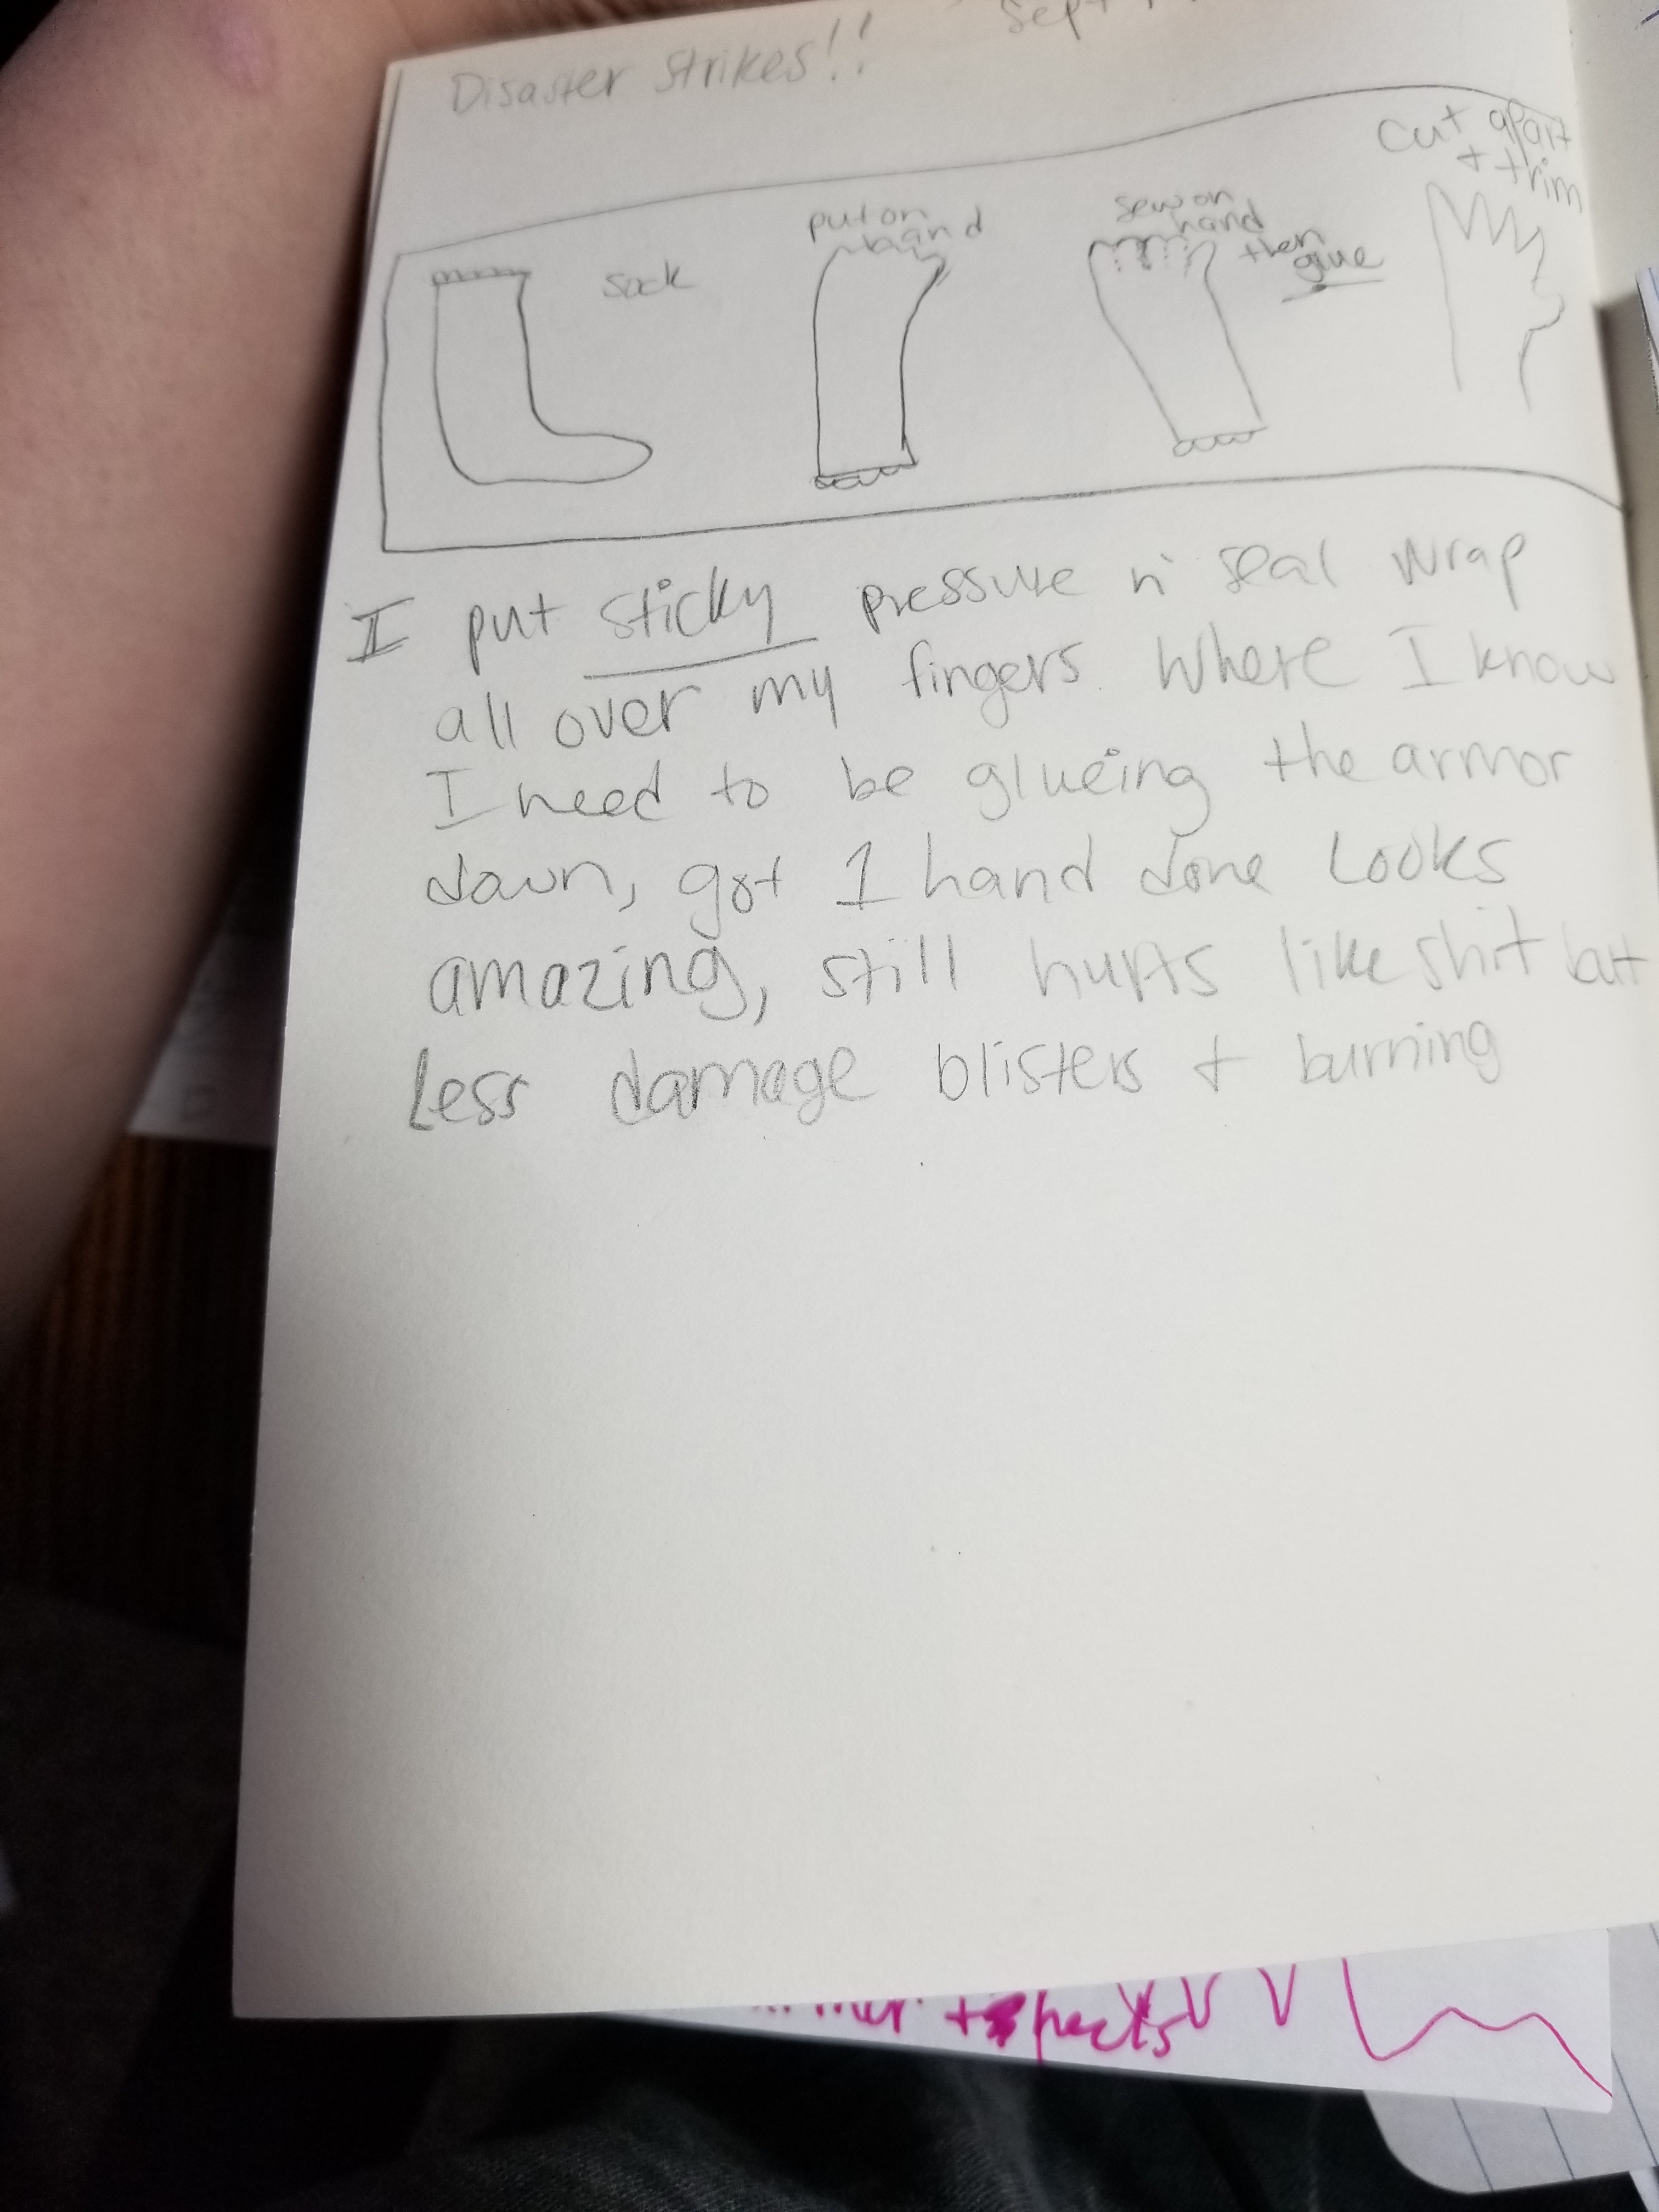 Disaster Strikes!! Sept
sock
put on
hand
sew on
hand
then
glue
Cut apart
+ trim
I put sticky pressure n' seal wrap
all over my fingers. Where I know
I need to be glueing the armor
down, got 1 hand done Looks
amazing, still hurts like shit but
Less damage blisters + burning
+ pecks